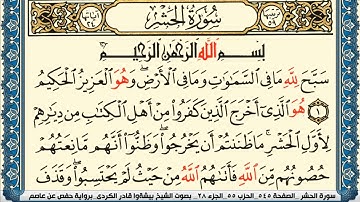 سُورَةُ الحَشْرِ
بِسْمِ اللَّهِ الرَّحْمَٰنِ الرَّحِيمِ
سَبَّحَ لِلَّهِ مَا فِي السَّمَاوَاتِ وَمَا فِي الْأَرْضِ ۖ وَهُوَ الْعَزِيزُ الْحَكِيمُ
١ هُوَ الَّذِي أَخْرَجَ الَّذِينَ كَفَرُوا مِنْ أَهْلِ الْكِتَابِ مِنْ دِيَارِهِمْ
لِأَوَّلِ الْحَشْرِ ۚ مَا ظَنَنْتُمْ أَنْ يَخْرُجُوا ۖ وَظَنُّوا أَنَّهُمْ مَانِعَتُهُمْ
حُصُونُهُمْ مِنَ اللَّهِ فَأَتَاهُمُ اللَّهُ مِنْ حَيْثُ لَمْ يَحْتَسِبُوا ۖ وَقَذَفَ
سورة الحشر_الصفحة ٥٤٥_الحزب ٥٥_الجزء ٢٨_ بصوت الشيخ بيشةوا قادر الكردي_برواية حفص عن عاصم